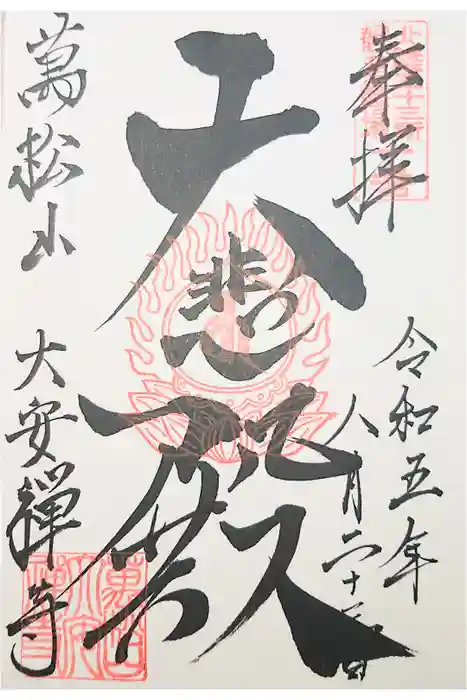 奉拝
令和五年
八月二十三日
大悲殿
萬松山
大安禪寺